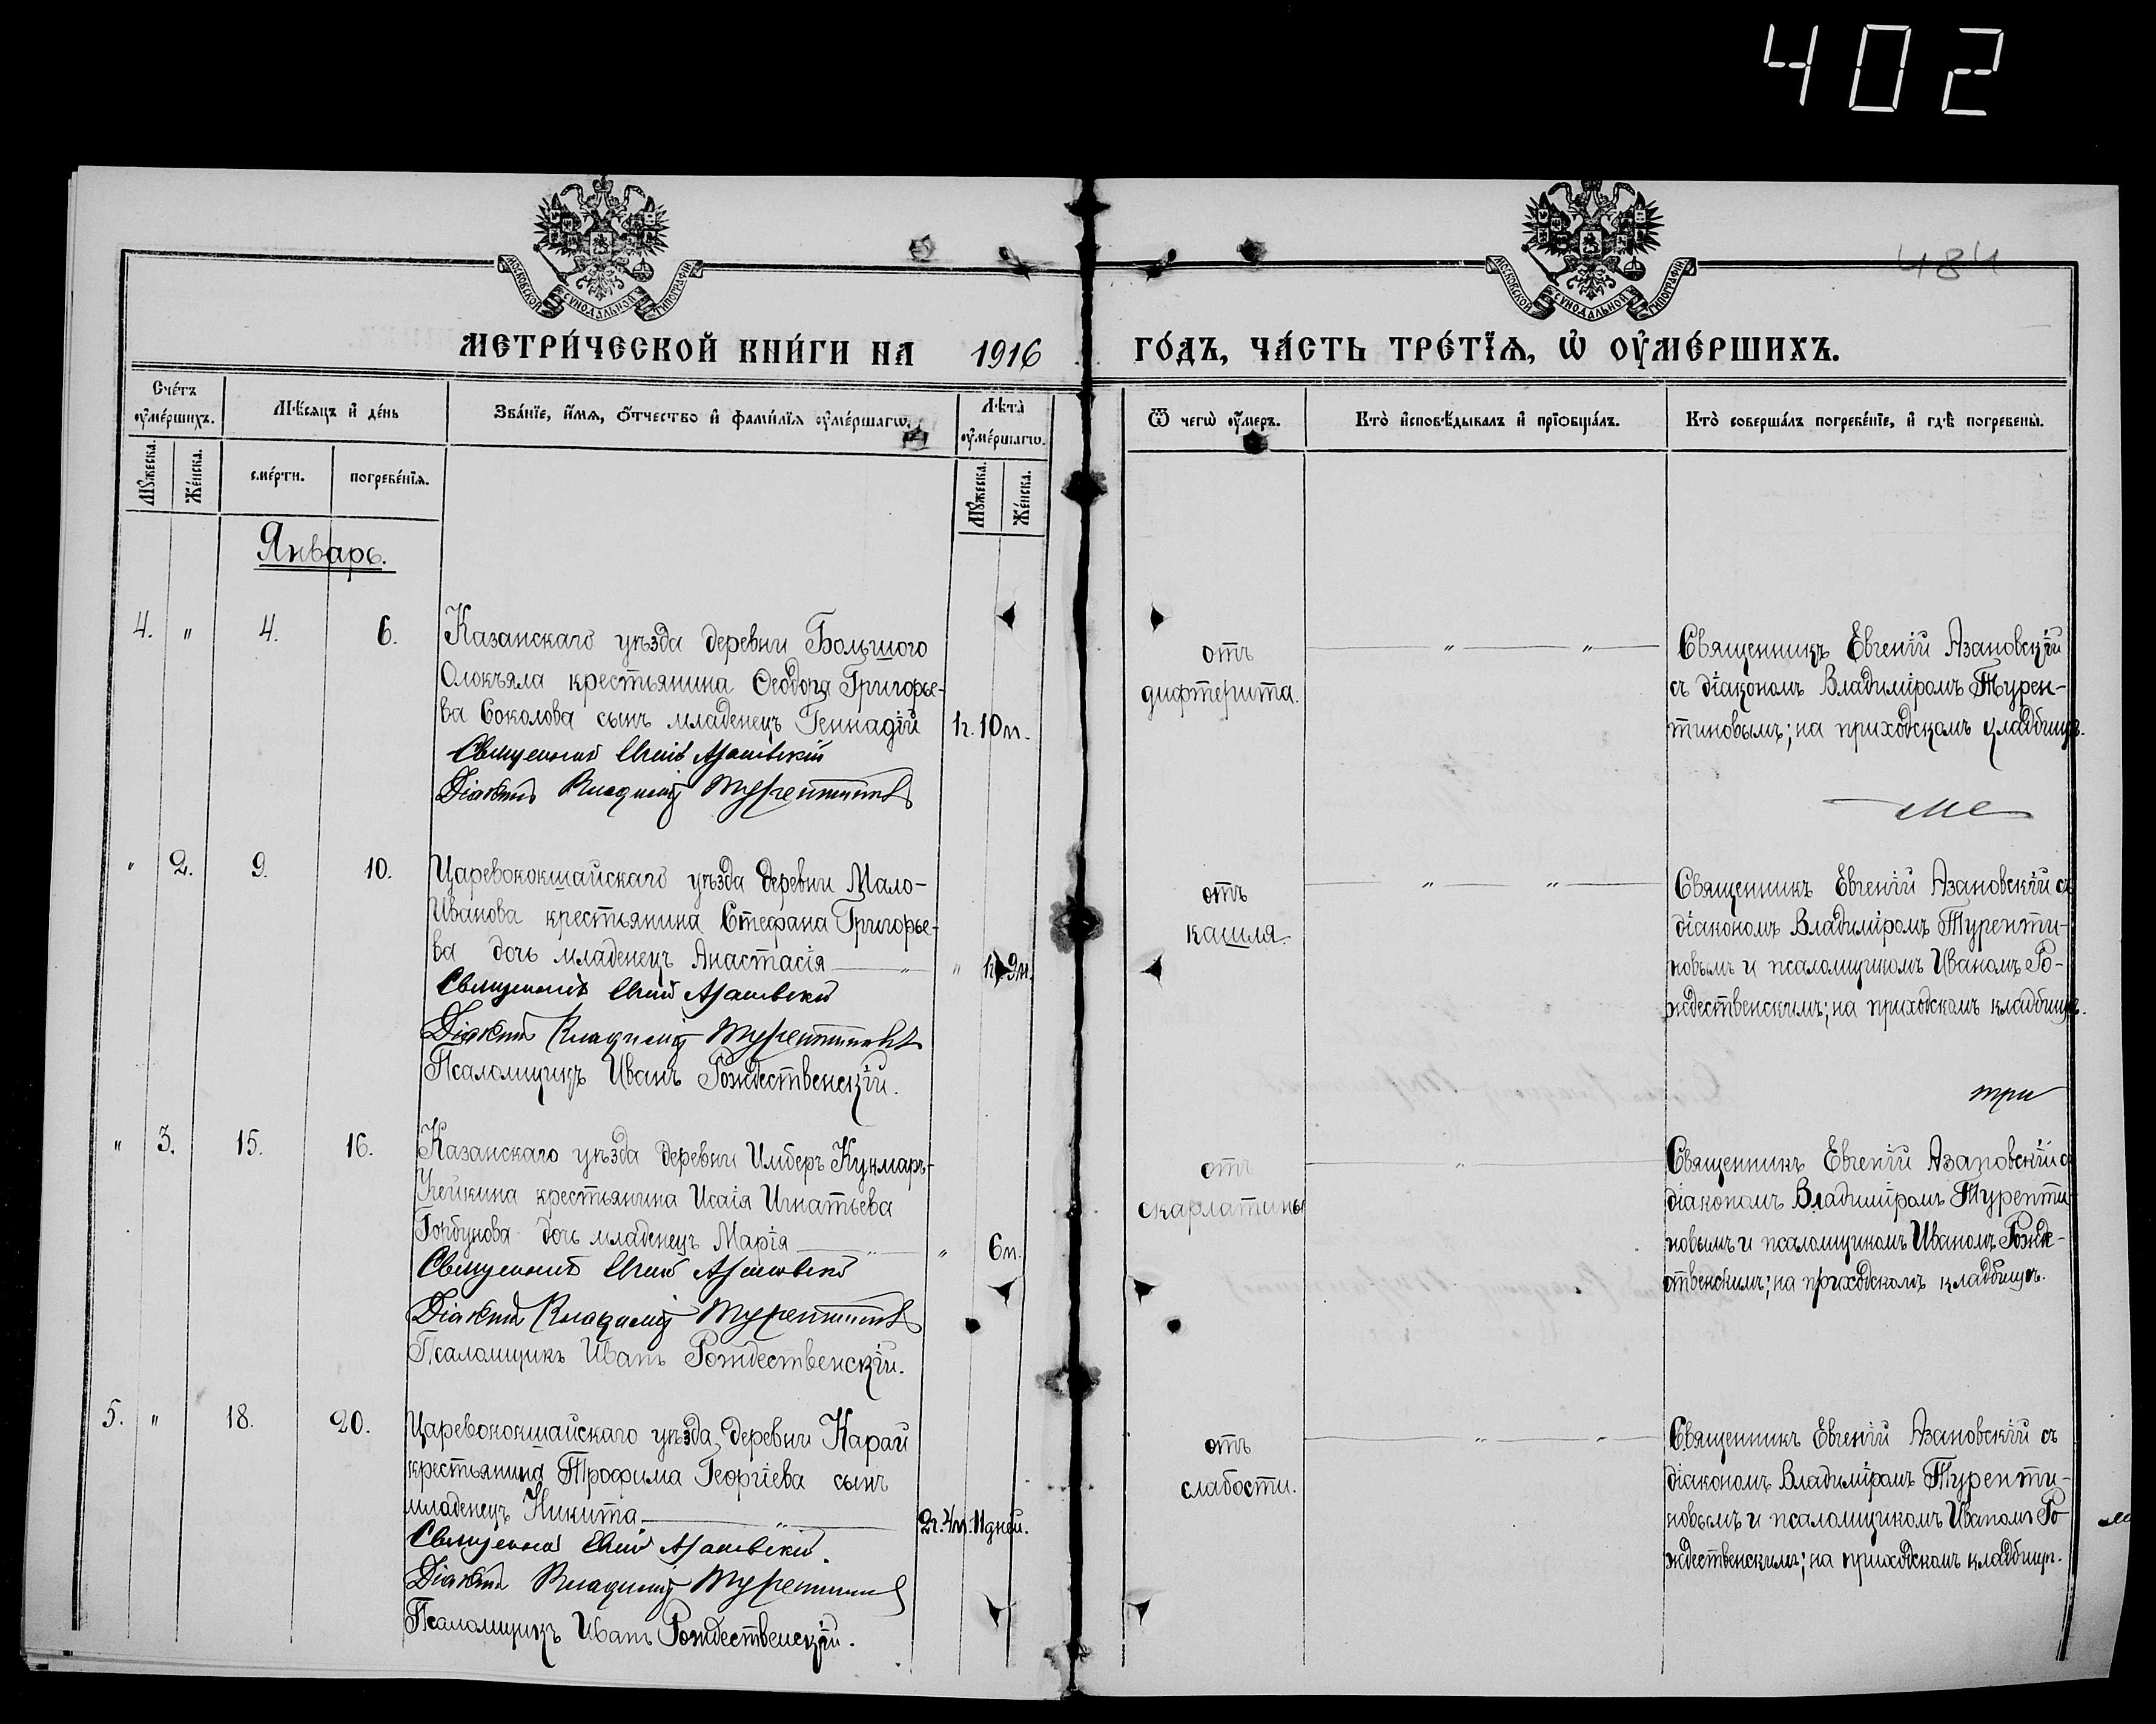 402
484
МОСКОВСКОЙ СѴНОДАЛЬНОЙ ТИПОГРАФІИ
МОСКОВСКОЙ СѴНОДАЛЬНОЙ ТИПОГРАФІИ
МЕТРИ́ЧЕСКОЙ КНИ́ГИ НА 1916 ГО́ДЪ, ЧА́СТЬ ТРЕ́ТЇѦ, Ѡ҆ ОУ҆МЕ́РШИХЪ.
Сче́тъ оу҆ме́ршихъ.
Мꙋ́жеска.
Же́нска.
Мѣ́сяцъ и҆ де́нь
сме́рти.
погребе́нїѧ.
Зва́нїе, и҆́мѧ, ѻ҆́тчество и҆ фами́лїѧ оу҆ме́ршагѡ.
Лѣ́та оу҆ме́ршагѡ.
Мꙋ́жеска.
Же́нска.
Ѿ чегѡ̀ оу҆́меръ.
Кто̀ и҆сповѣ́дывалъ и҆ прїѡбща́лъ.
Кто̀ соверша́лъ погребе́нїе, и҆ гдѣ̀ погребены̀.
Январь.
4. " 4. 6.
Казанскаго уѣзда деревни Большого
Олокъяла крестьянина Ѳеодора Григорье-
ва Соколова сынъ младенецъ Геннадій 1г. 10м.
Священникъ Евгеній Азановскій
Діаконъ Владиміръ Турентиновъ
отъ
дифтерита.
" "
Священникъ Евгеній Азановскій
съ діакономъ Владиміромъ Турен-
тиновымъ; на приходскомъ кладбищѣ.
" 2. 9. 10.
Царевококшайскаго уѣзда деревни Мало-
Иванова крестьянина Стефана Григорье-
ва дочь младенецъ Анастасія " " 1г. 9м.
Священникъ Евгеній Азановскій
Діаконъ Владиміръ Турентиновъ
Псаломщикъ Иванъ Рождественскій.
отъ
кашля.
" "
Священникъ Евгеній Азановскій съ
діакономъ Владиміромъ Туренти-
новымъ и псаломщикомъ Иваномъ Ро-
ждественскимъ; на приходскомъ кладбищѣ.
три
" 3. 15. 16.
Казанскаго уѣзда деревни Имберъ Кукмаръ-
Учейкина крестьянина Исаія Игнатьева
Горбунова дочь младенецъ Марія " " 6м.
Священникъ Евгеній Азановскій
Діаконъ Владиміръ Турентиновъ
Псаломщикъ Иванъ Рождественскій.
отъ
скарлатины
"
Священникъ Евгеній Азановскій съ
діакономъ Владиміромъ Туренти
новымъ и псаломщикомъ Иваномъ Рожде-
ственскимъ; на приходскомъ кладбищѣ.
5. " 18. 20.
Царевококшайскаго уѣзда деревни Карай
крестьянина Трофима Георгіева сынъ
младенецъ Никита " 2г. 4м. 11дней.
Священникъ Евгеній Азановскій.
Діаконъ Владиміръ Турентиновъ
Псаломщикъ Иванъ Рождественскій.
отъ
слабости.
" "
Священникъ Евгеній Азановскій съ
діакономъ Владиміромъ Туренти-
новымъ и псаломщикомъ Иваномъ Ро-
ждественскимъ; на приходскомъ кладбищѣ.